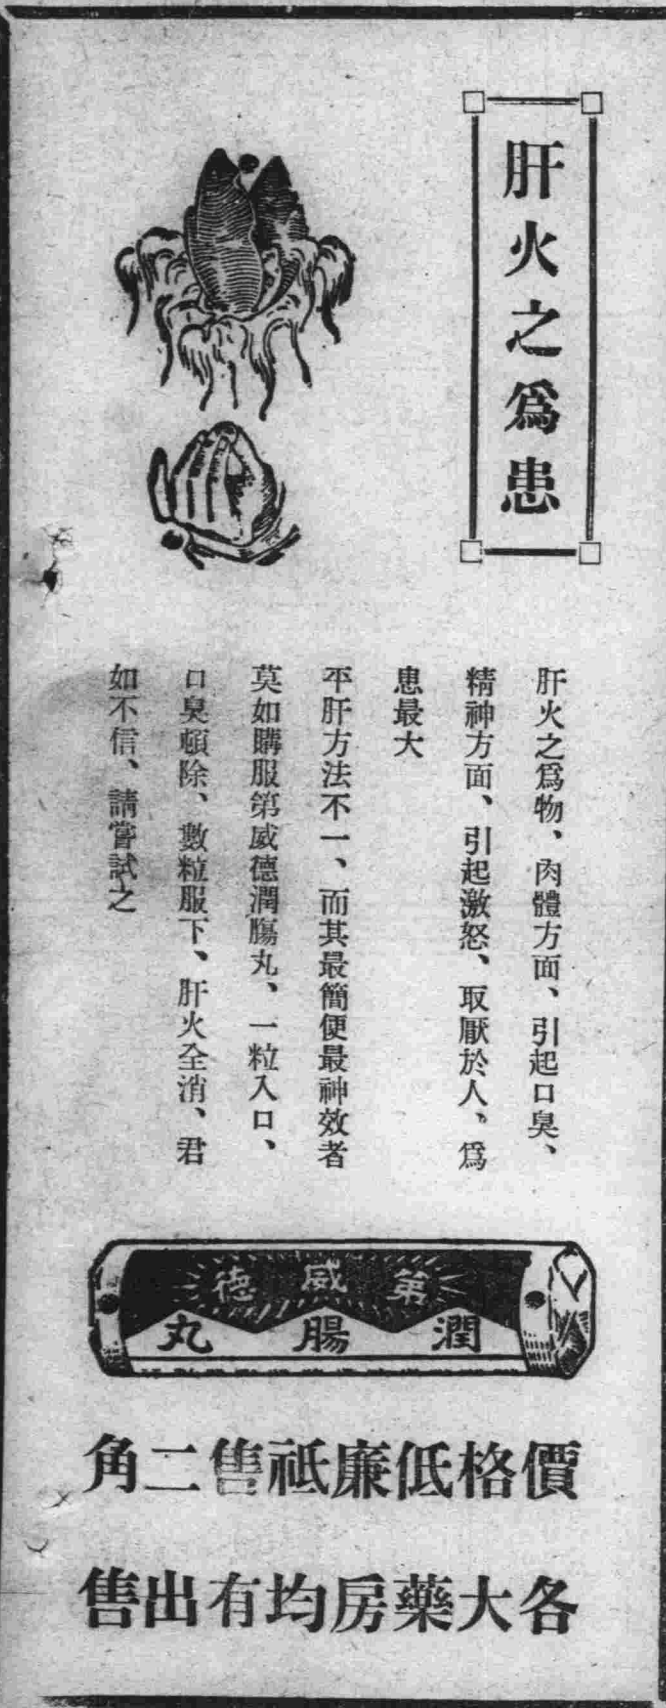 肝火之爲患
肝火之爲物、肉體方面、引起口臭、
精神方面、引起激怒、取厭於人、爲
患最大
平肝方法不一、而其最簡便最神效者
莫如購服第威德潤腸丸、一粒入口、
口臭頓除、數粒服下、肝火全消、君
如不信、請嘗試之
第威德
潤腸丸
價格低廉祇售二角
各大藥房均有出售